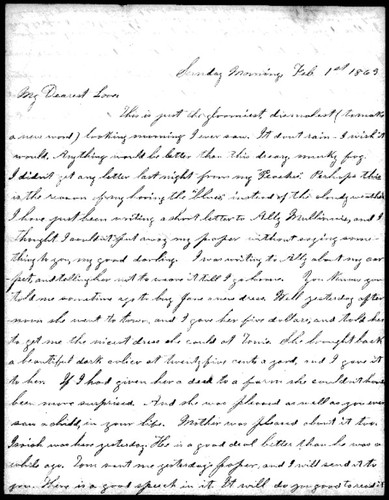 Sunday Morning, Feb 1st 1863
My Dearest Love,
This is just the gloomiest, dismalest (to make
a new word) looking morning I ever saw. It dont rain. I wish it
would. Anything would be better than this dreary, murky fog.
I didn't get any letter last night from my Perhaps this
is the reason for my having the "blues" instead of the cloudy weather.
I have just been writing a short letter to Ally and I
thought I couldn't put away my paper without saying some-
thing to you, my good darling. I was writing to Ally about my car-
pet, and telling her not to weave it till I go home. You know you
told me sometime ago to buy Jane a new dress. Well yesterday after-
noon she went to town, and I gave her five dollars, and told her
to get me the nicest dress she could at She brought back
a beautiful dark at twenty five cents a yard, and I gave it
to her. If I had given her a deed to a farm she couldn't have
been more surprised. And she was pleased as well as you ever
saw a child, in your life. Mother was pleased about it too.
was here yesterday. He is a good deal better than he was a
while ago. Tom sent me yesterday's paper, and I will send it to
you. There is a good speech in it. It will do you good to read it